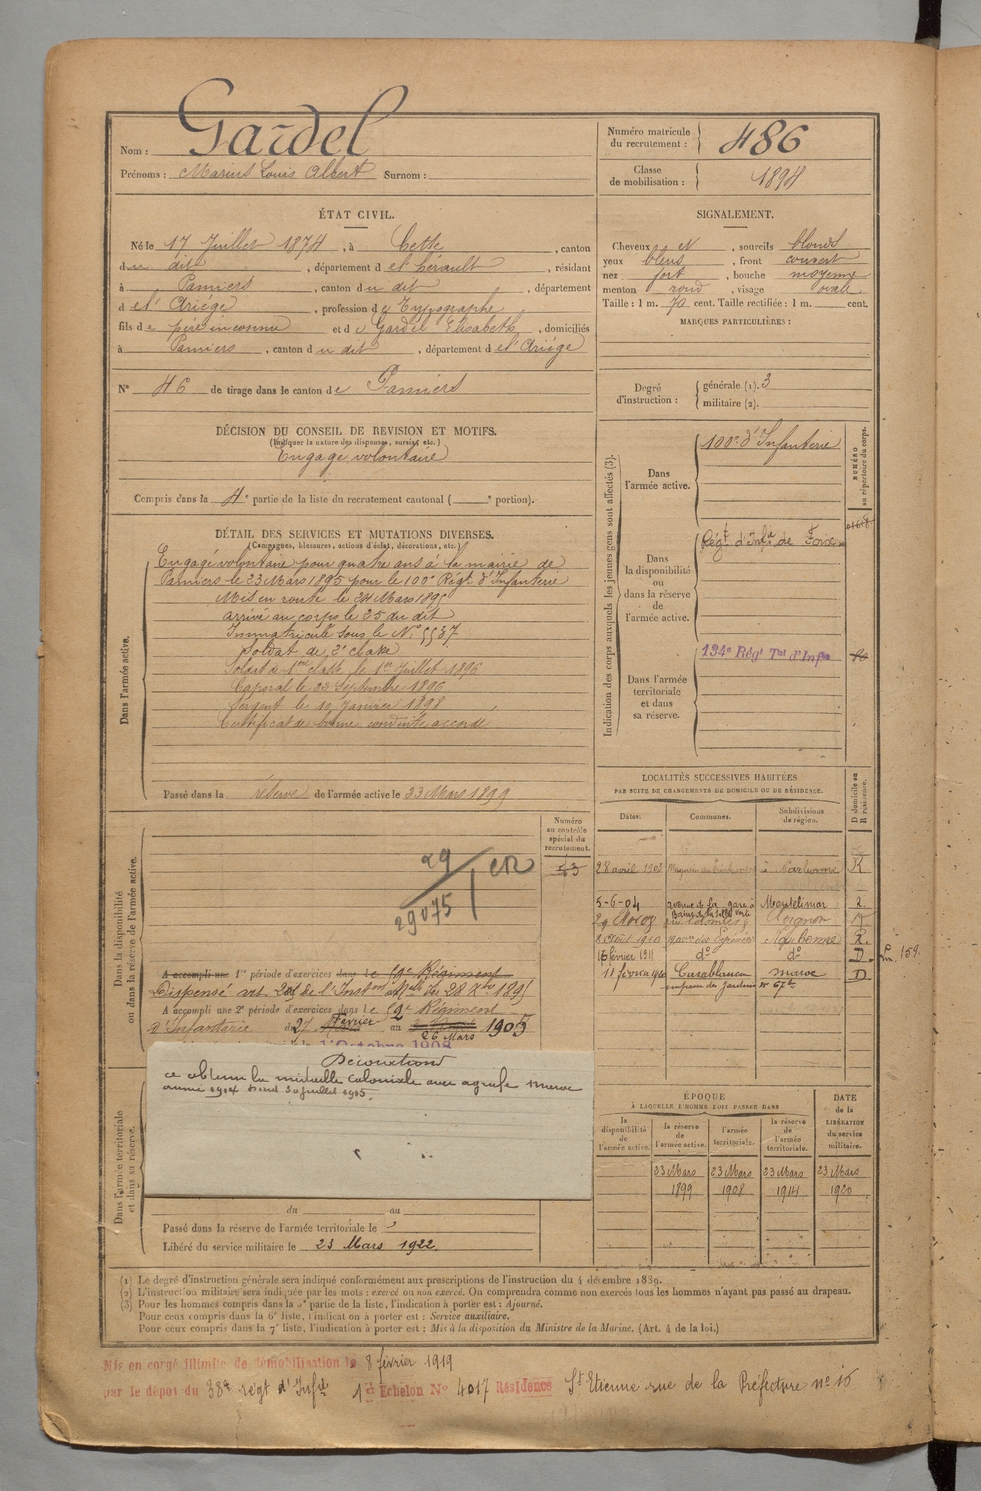 Nom : Gardel
Prénoms : Marius Louis Albert Surnom :
Numéro matricule du recrutement : 486
Classe de mobilisation : 1894
ÉTAT CIVIL.
Né le 17 Juillet 1874, à Cette, canton
du dit, département de l'hérault, résidant
à Pamiers, canton du dit, département
de l'Ariége, profession de Typographe
fils de père inconnu et de Gardel Elisabeth, domiciliés
à Pamiers, canton du dit, département de l'Ariége
N° 46 de tirage dans le canton de Pamiers
SIGNALEMENT.
Cheveux N, sourcils blonds
yeux bleus, front couvert
nez fort, bouche moyenne
menton rond, visage ovale
Taille : 1 m. 70 cent. Taille rectifiée : 1 m. cent.
MARQUES PARTICULIÈRES :
Degré d'instruction :
générale (1). 3
militaire (2).
DÉCISION DU CONSEIL DE REVISION ET MOTIFS.
(Indiquer la nature des dispenses, sursis, etc.)
Engagé volontaire
Compris dans la 4e partie de la liste du recrutement cantonal ( e portion).
DÉTAIL DES SERVICES ET MUTATIONS DIVERSES.
(Campagnes, blessures, actions d'éclat, décorations, etc.)
Dans l'armée active.
Engagé volontaire pour quatre ans à la mairie de
Pamiers le 23 Mars 1895 pour le 100e Régt d'Infanterie
Mis en route le 24 Mars 1895
arrivé au corps le 25 du dit
Immatriculé sous le N° 5537
Soldat de 2e classe
Soldat de 1ère classe, le 1er Juillet 1896
Caporal le 22 Septembre 1896
Sergent le 10 Janvier 1898
Certificat de bonne conduite accordé
Passé dans la réserve de l'armée active le 23 Mars 1899
Indication des corps auxquels les jeunes gens sont affectés (3).
NUMÉRO au répertoire du corps.
Dans l'armée active.
100e d'Infanterie
Dans la disponibilité ou dans la réserve de l'armée active.
Régt d'Infie de Foix
Dans l'armée territoriale et dans sa réserve.
134e Régt Tal d'Infie
LOCALITÉS SUCCESSIVES HABITÉES
PAR SUITE DE CHANGEMENTS DE DOMICILE OU DE RÉSIDENCE.
Dates. Communes. Subdivisions de région. D domicile ou R résidence.
28 avril 1903 à Narbonne R
5-6-04 avenue de la gare à Montelimar R.
Avignon R
8 Août 1910 Narbonne R.
16 février 1911 d° d° D
11 février 1920 Casablanca maroc D
n° 67
159.
Dans la disponibilité ou dans la réserve de l'armée active.
Numéro au contrôle spécial du recrutement.
53
29
29075
A accompli une 1re période d'exercices dans le Régiment
A accompli une 2e période d'exercices dans le Régiment
d'Infanterie du 27 Février au 26 Mars 1905
Décorations
a obtenu la médaille Coloniale avec agrafe Maroc
Dans l'armée territoriale et dans sa réserve.
du au
Passé dans la réserve de l'armée territoriale le
Libéré du service militaire le 23 Mars 1922.
ÉPOQUE
À LAQUELLE L'HOMME DOIT PASSER DANS
la disponibilité de l'armée active. la réserve de l'armée active. l'armée territoriale. la réserve de l'armée territoriale.
DATE de la LIBÉRATION du service militaire.
23 Mars 23 Mars 23 Mars 23 Mars
1899 1908 1914 1920
(1) Le degré d'instruction générale sera indiqué conformément aux prescriptions de l'instruction du 4 décembre 1889.
(2) L'instruction militaire sera indiquée par les mots : exercé ou non exercé. On comprendra comme non exercés tous les hommes n'ayant pas passé au drapeau.
(3) Pour les hommes compris dans la partie de la liste, l'indication à porter est : Ajourné.
Pour ceux compris dans la 6e liste, l'indication à porter est : Service auxiliaire.
Pour ceux compris dans la 7e liste, l'indication à porter est : Mis à la disposition du Ministre de la Marine. (Art. 4 de la loi.)
Mis en congé illimité de démobilisation le 8 février 1919
par le dépôt du 38e régt d'Infie 1er Echelon N° 4017 Résidence St Etienne rue de la Préfecture n° 16